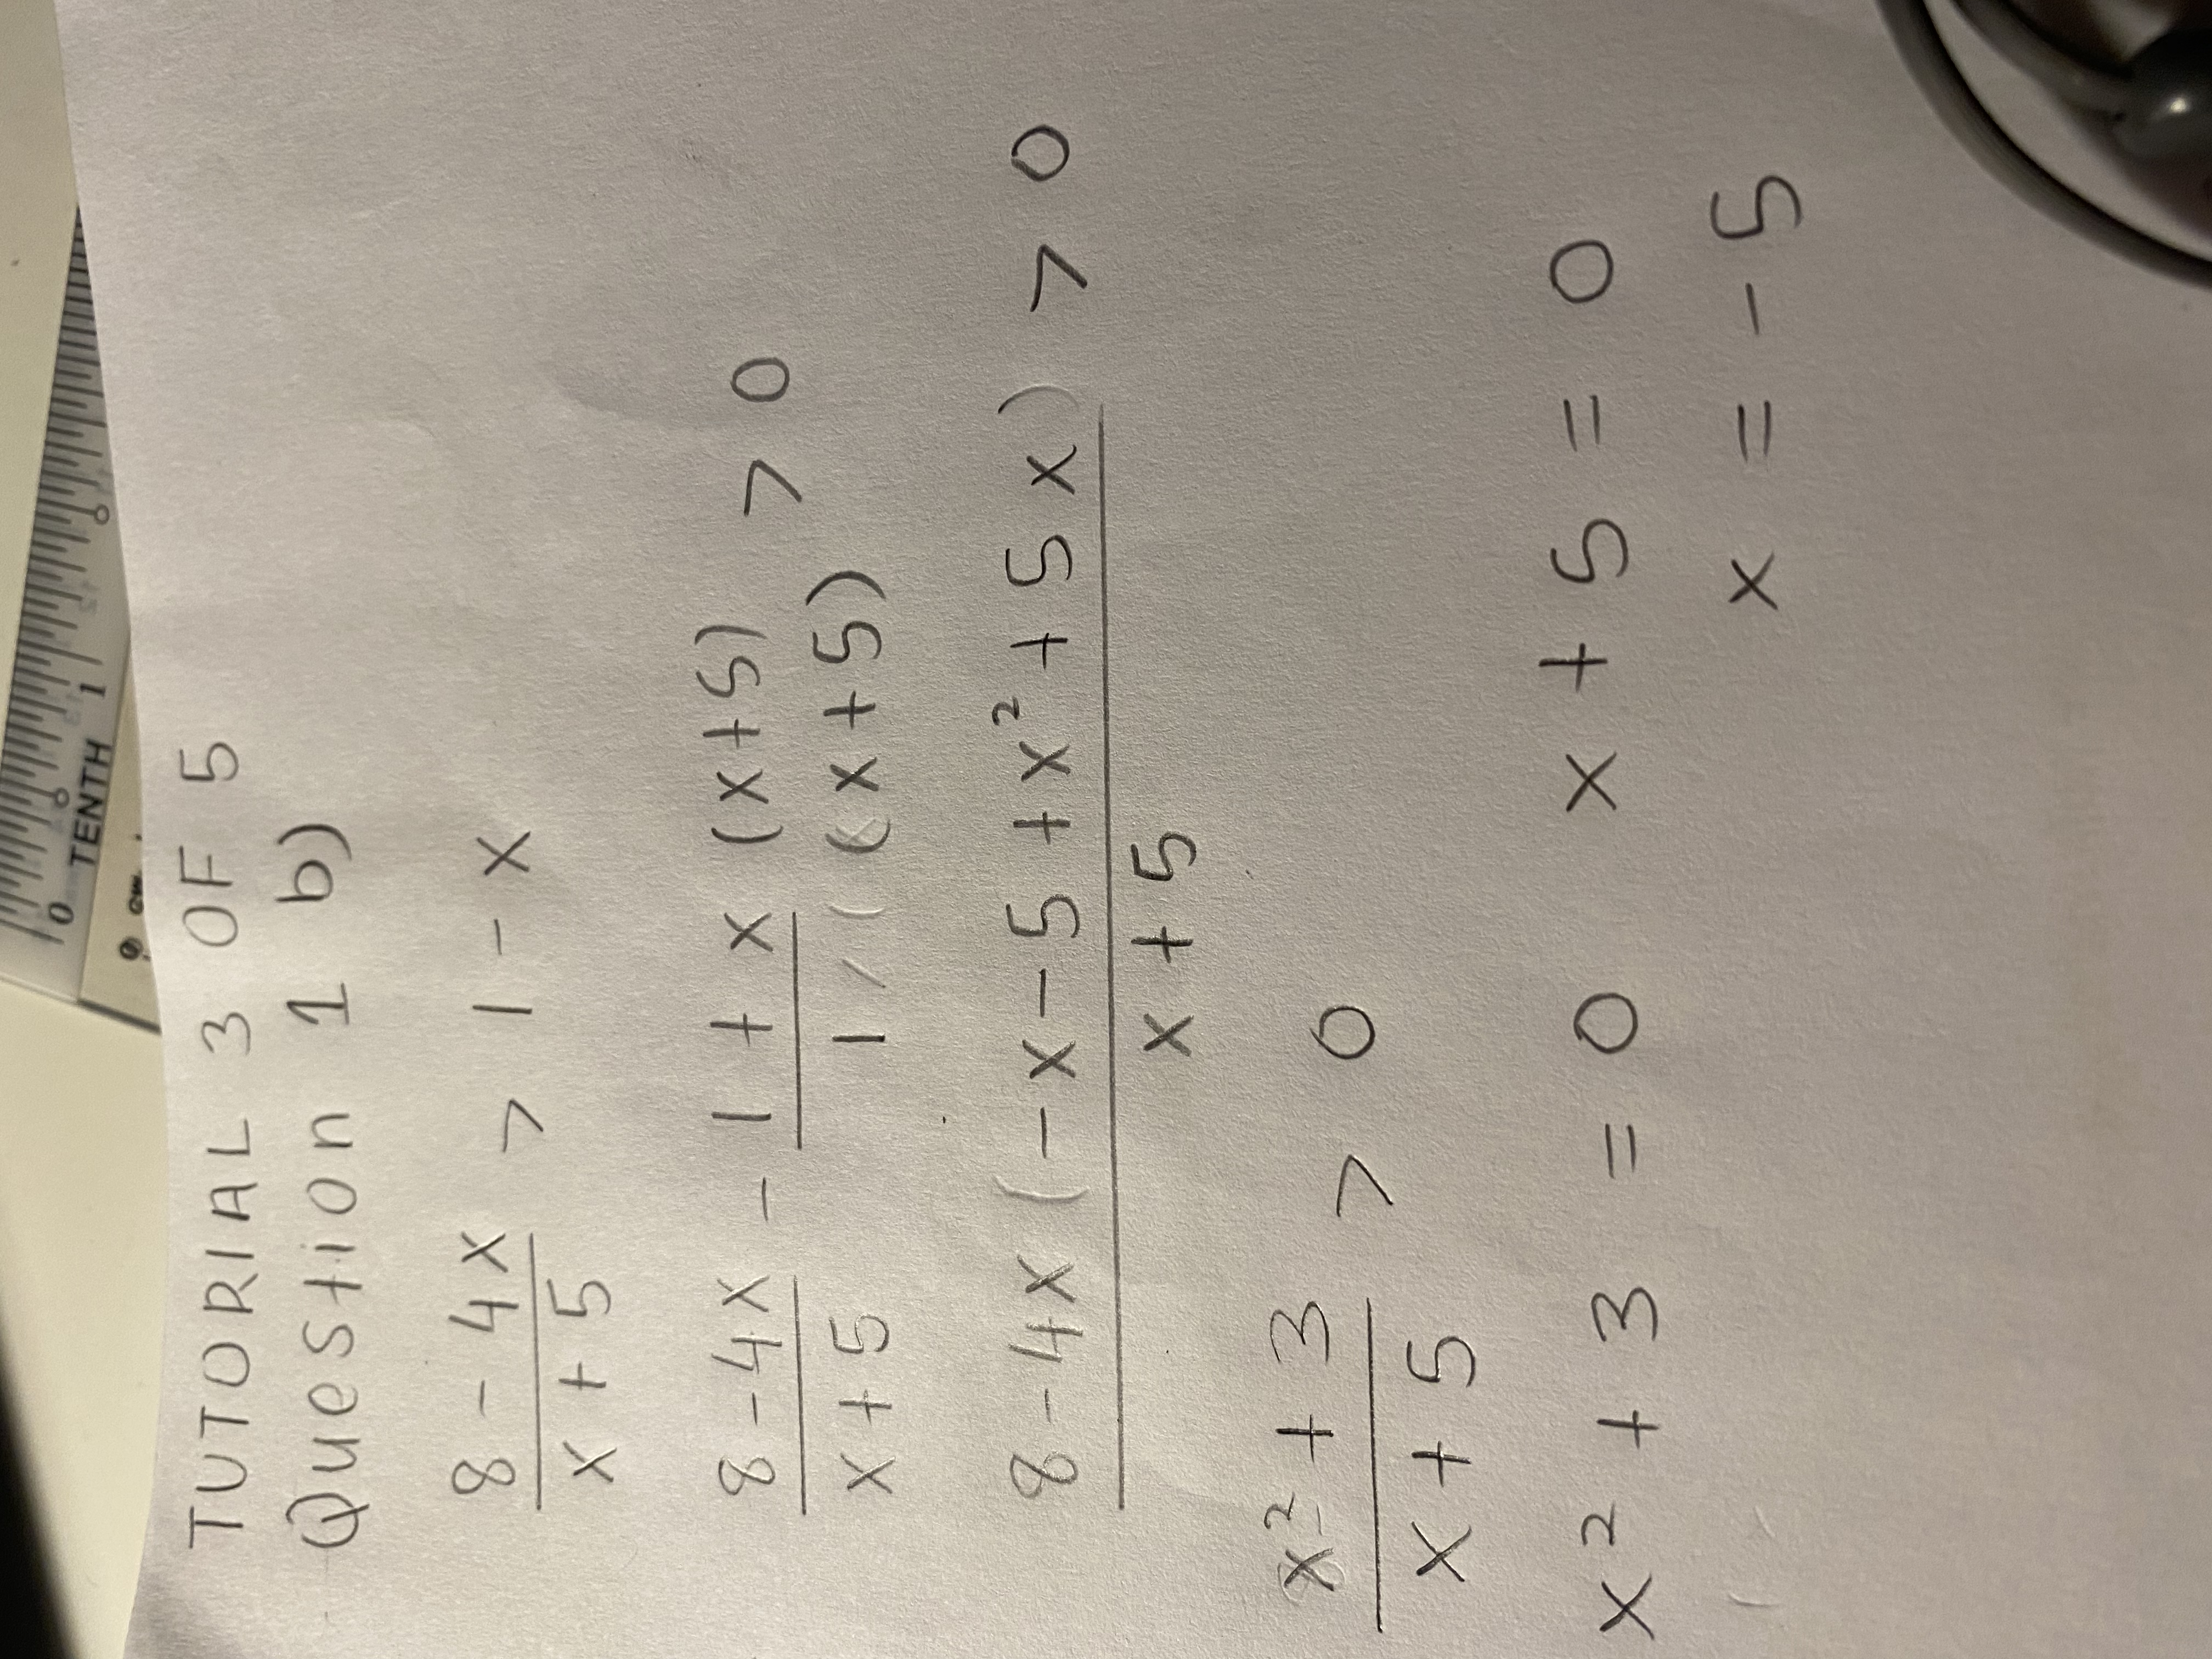 0 1
TENTH
0 cm
TUTORIAL 3 OF 5
Question 1 b)
8 - 4x / x + 5 > 1 - x
8 - 4x / x + 5 - 1 + x (x+5) / 1 (x + 5) > 0
8 - 4x (- x - 5 + x² + 5x) / x + 5 > 0
x² + 3 / x + 5 > 0
x² + 3 = 0 x + 5 = 0
x = - 5